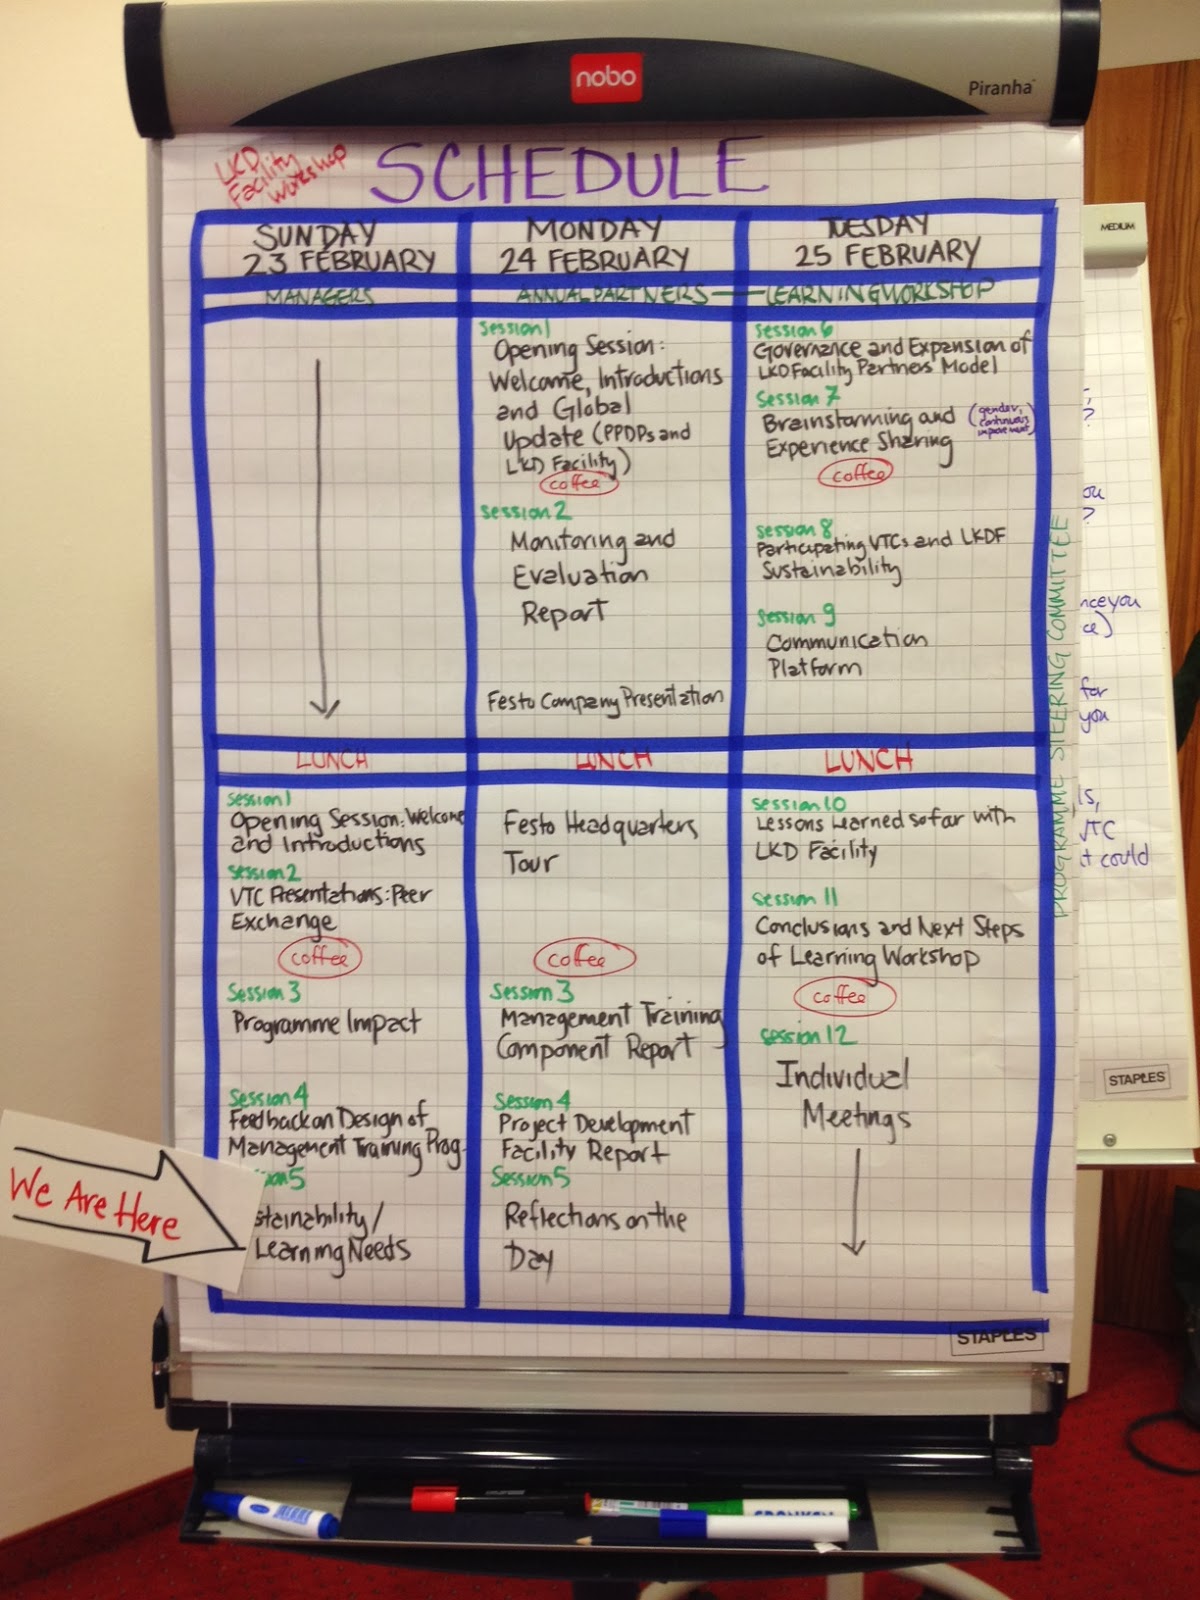 nobo
Piranha
LKD
Facility
Workshop
SCHEDULE
SUNDAY
23 FEBRUARY
MONDAY
24 FEBRUARY
TUESDAY
25 FEBRUARY
MANAGERS
ANNUAL PARTNERS — LEARNING WORKSHOP
Session 1
Opening Session:
Welcome, Introductions
and Global
Update (PPDPs and
LKD Facility)
coffee
Session 2
Monitoring and
Evaluation
Report
Festo Company Presentation
Session 6
Governance and Expansion of
LKD Facility Partners Model
Session 7
Brainstorming and
Experience Sharing
(gender,
continuous
improvement)
coffee
Session 8
Participating VTCs and LKDF
Sustainability
Session 9
Communication
Platform
LUNCH
LUNCH
LUNCH
Session 1
Opening Session: Welcome
and Introductions
Session 2
VTC Presentations: Peer
Exchange
coffee
Session 3
Programme Impact
Session 4
Feedback on Design of
Management Training Prog.
sion 5
stainability/
Learning Needs
We Are Here
Festo Headquarters
Tour
coffee
Session 3
Management Training
Component Report
Session 4
Project Development
Facility Report
Session 5
Reflections on the
Day
Session 10
Lessons Learned so far with
LKD Facility
Session 11
Conclusions and Next Steps
of Learning Workshop
coffee
Session 12
Individual
Meetings
PROGRAMME STEERING COMMITTEE
STAPLES
MEDIUM
?
ou
?
nce you
ce)
for
you
is,
VTC
t could
STAPLES